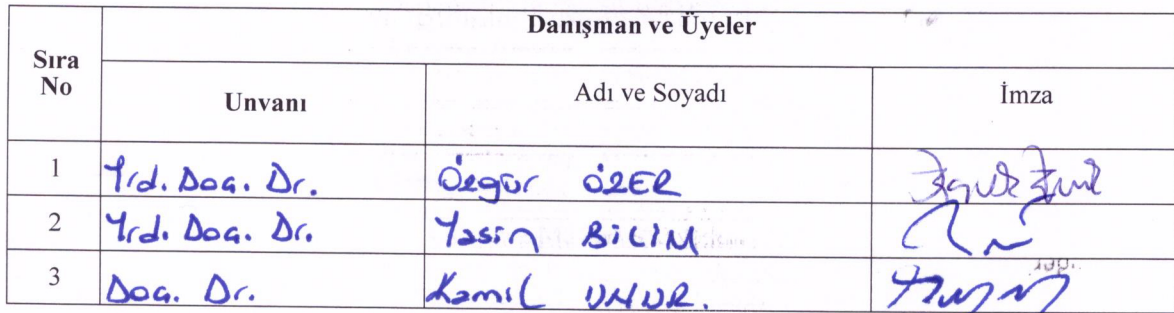 Danışman ve Üyeler
Sıra No
Unvanı Adı ve Soyadı İmza
1 Yrd. Doç. Dr. Özgür ÖZER
2 Yrd. Doç. Dr. Yasin BİLİM
3 Doç. Dr. Kamil UNUR.